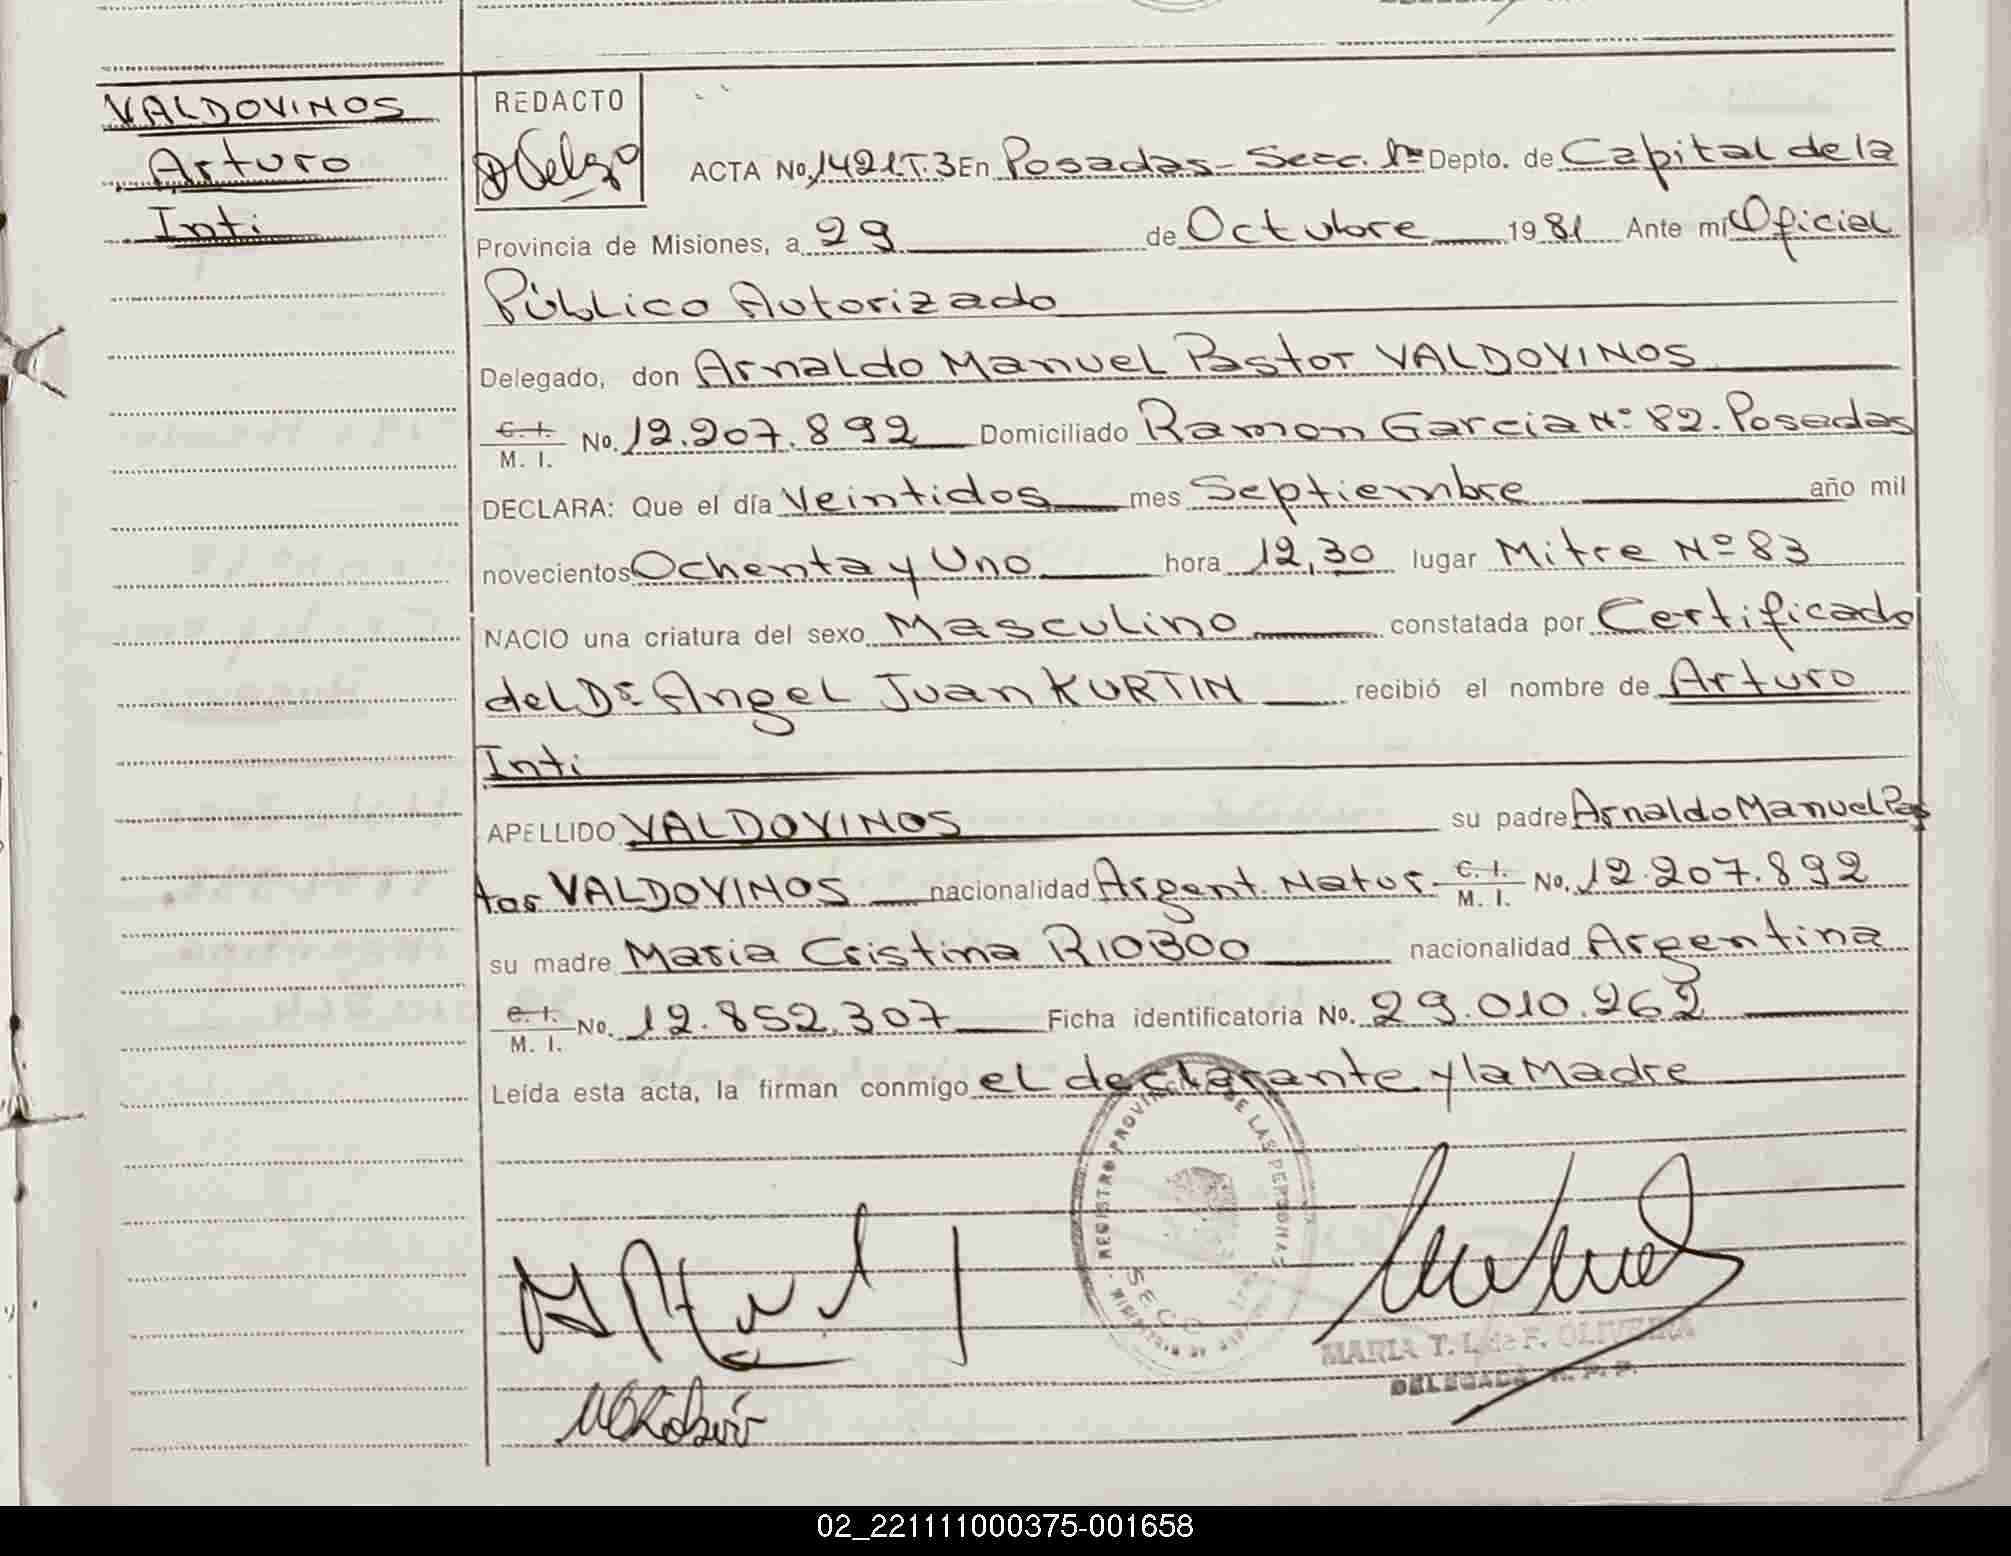 VALDOVINOS
Arturo
Inti
REDACTO
ACTA No. 1421.T.3 En Posadas - Secc. 1ª Depto. de Capital de la
Provincia de Misiones, a 29 de Octubre 1981 Ante mí Oficial
Público Autorizado
Delegado, don Arnaldo Manuel Pastor VALDOVINOS
C. I. / M. I. No. 12.207.892 Domiciliado Ramon Garcia Nº 82. Posadas
DECLARA: Que el día Veintidos mes Septiembre año mil
novecientos Ochenta y Uno hora 12,30 lugar Mitre Nº 83
NACIO una criatura del sexo Masculino constatada por Certificado
del Dr. Angel Juan KURTIN recibió el nombre de Arturo
Inti
APELLIDO VALDOVINOS su padre Arnaldo Manuel Pas
tor VALDOVINOS nacionalidad Argent. Natur. C. I. / M. I. No. 12.207.892
su madre Maria Cristina RIOBOO nacionalidad Argentina
C. I. / M. I. No. 12.852.307 Ficha identificatoria No. 29.010.262
Leída esta acta, la firman conmigo el declarante y la Madre
REGISTRO PROVINCIAL DE LAS PERSONAS
SECC
MARIA T. L. de F. OLIVERA
DELEGADA R. P. P.
02_221111000375-001658